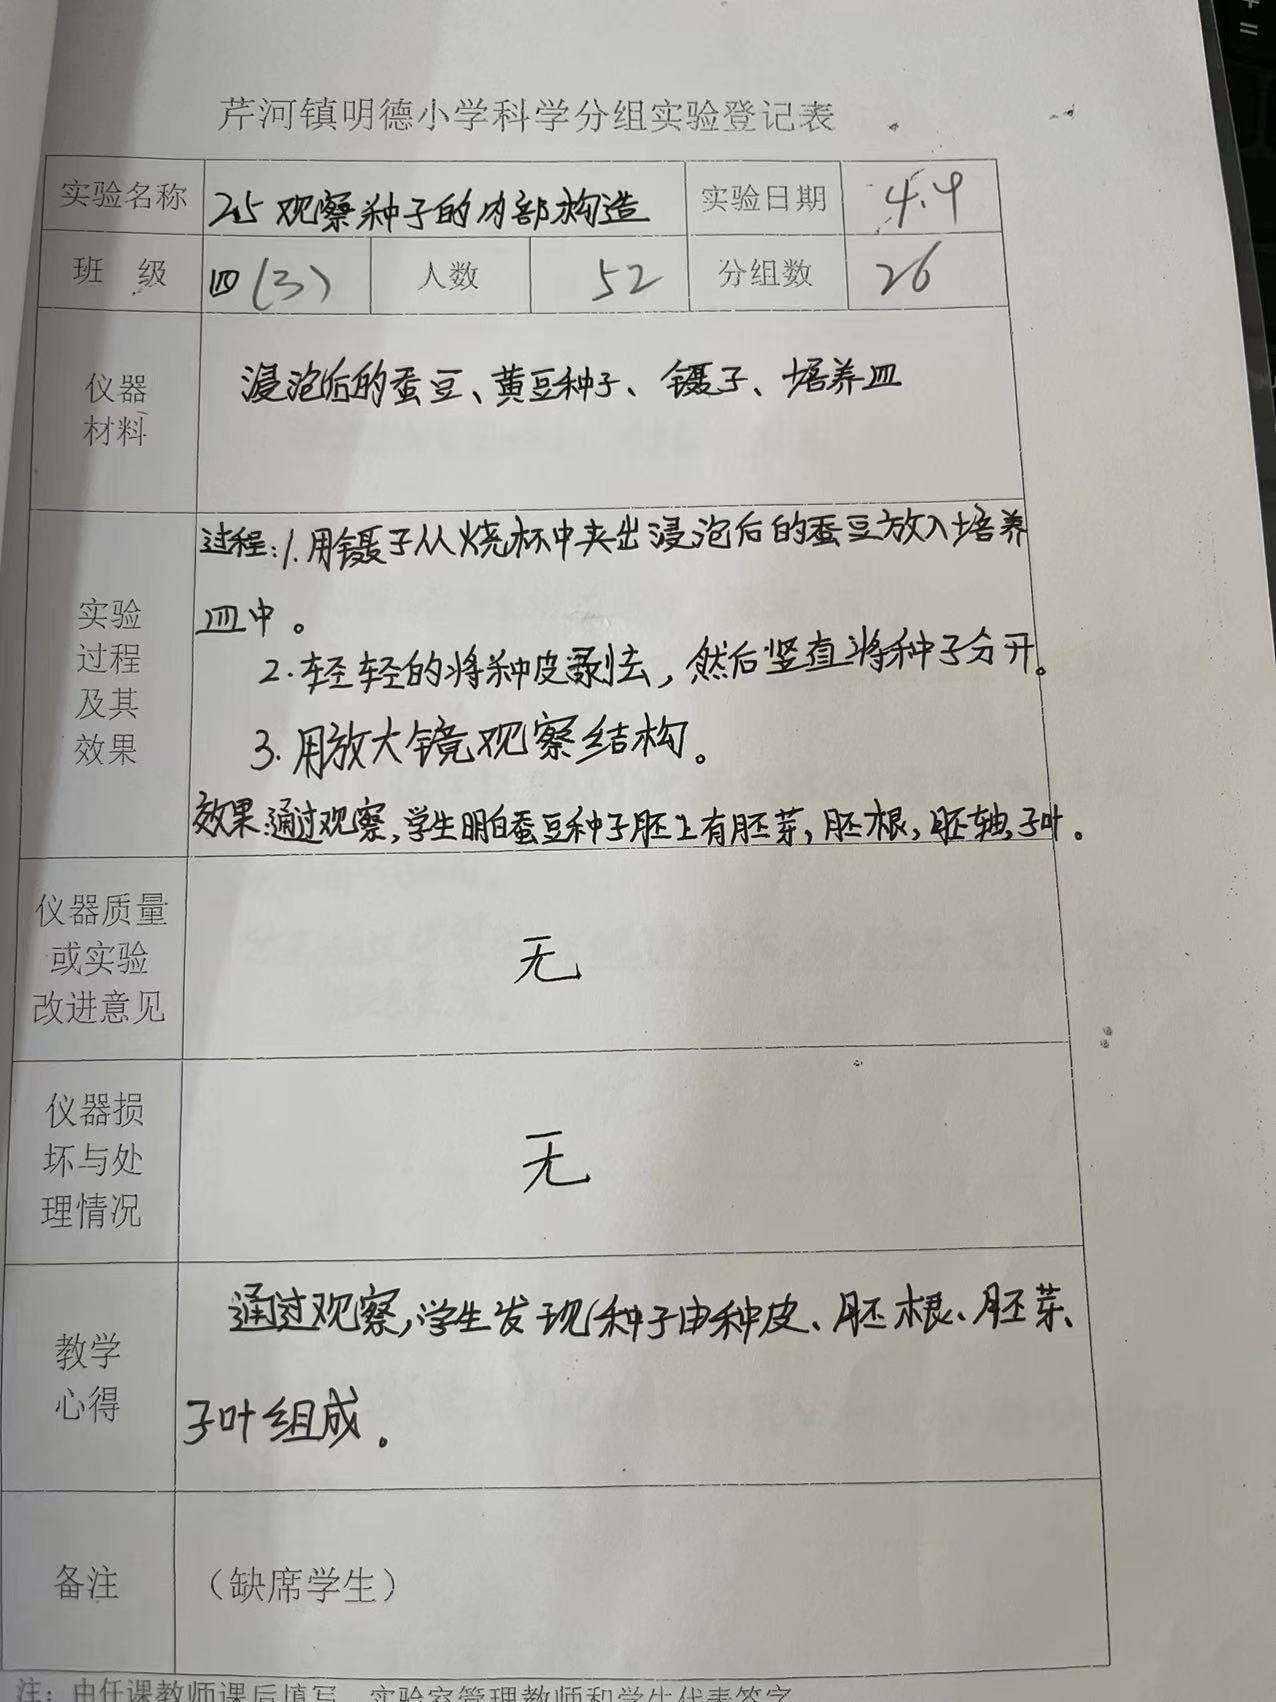 芹河镇明德小学科学分组实验登记表
实验名称 25 观察种子的内部构造 实验日期 4.9
班 级 四(3) 人数 52 分组数 26
仪器
材料
浸泡后的蚕豆、黄豆种子、镊子、培养皿
实验
过程
及其
效果
过程:1.用镊子从烧杯中夹出浸泡后的蚕豆放入培养
皿中。
2.轻轻的将种皮剥去,然后竖直将种子分开。
3.用放大镜观察结构。
效果:通过观察,学生明白蚕豆种子胚上有胚芽,胚根,胚轴,子叶。
仪器质量
或实验
改进意见
无
仪器损
坏与处
理情况
无
教学
心得
通过观察,学生发现种子由种皮、胚根、胚芽、
子叶组成.
备注 (缺席学生)
注:由任课教师课后填写,实验室管理教师和学生代表签字